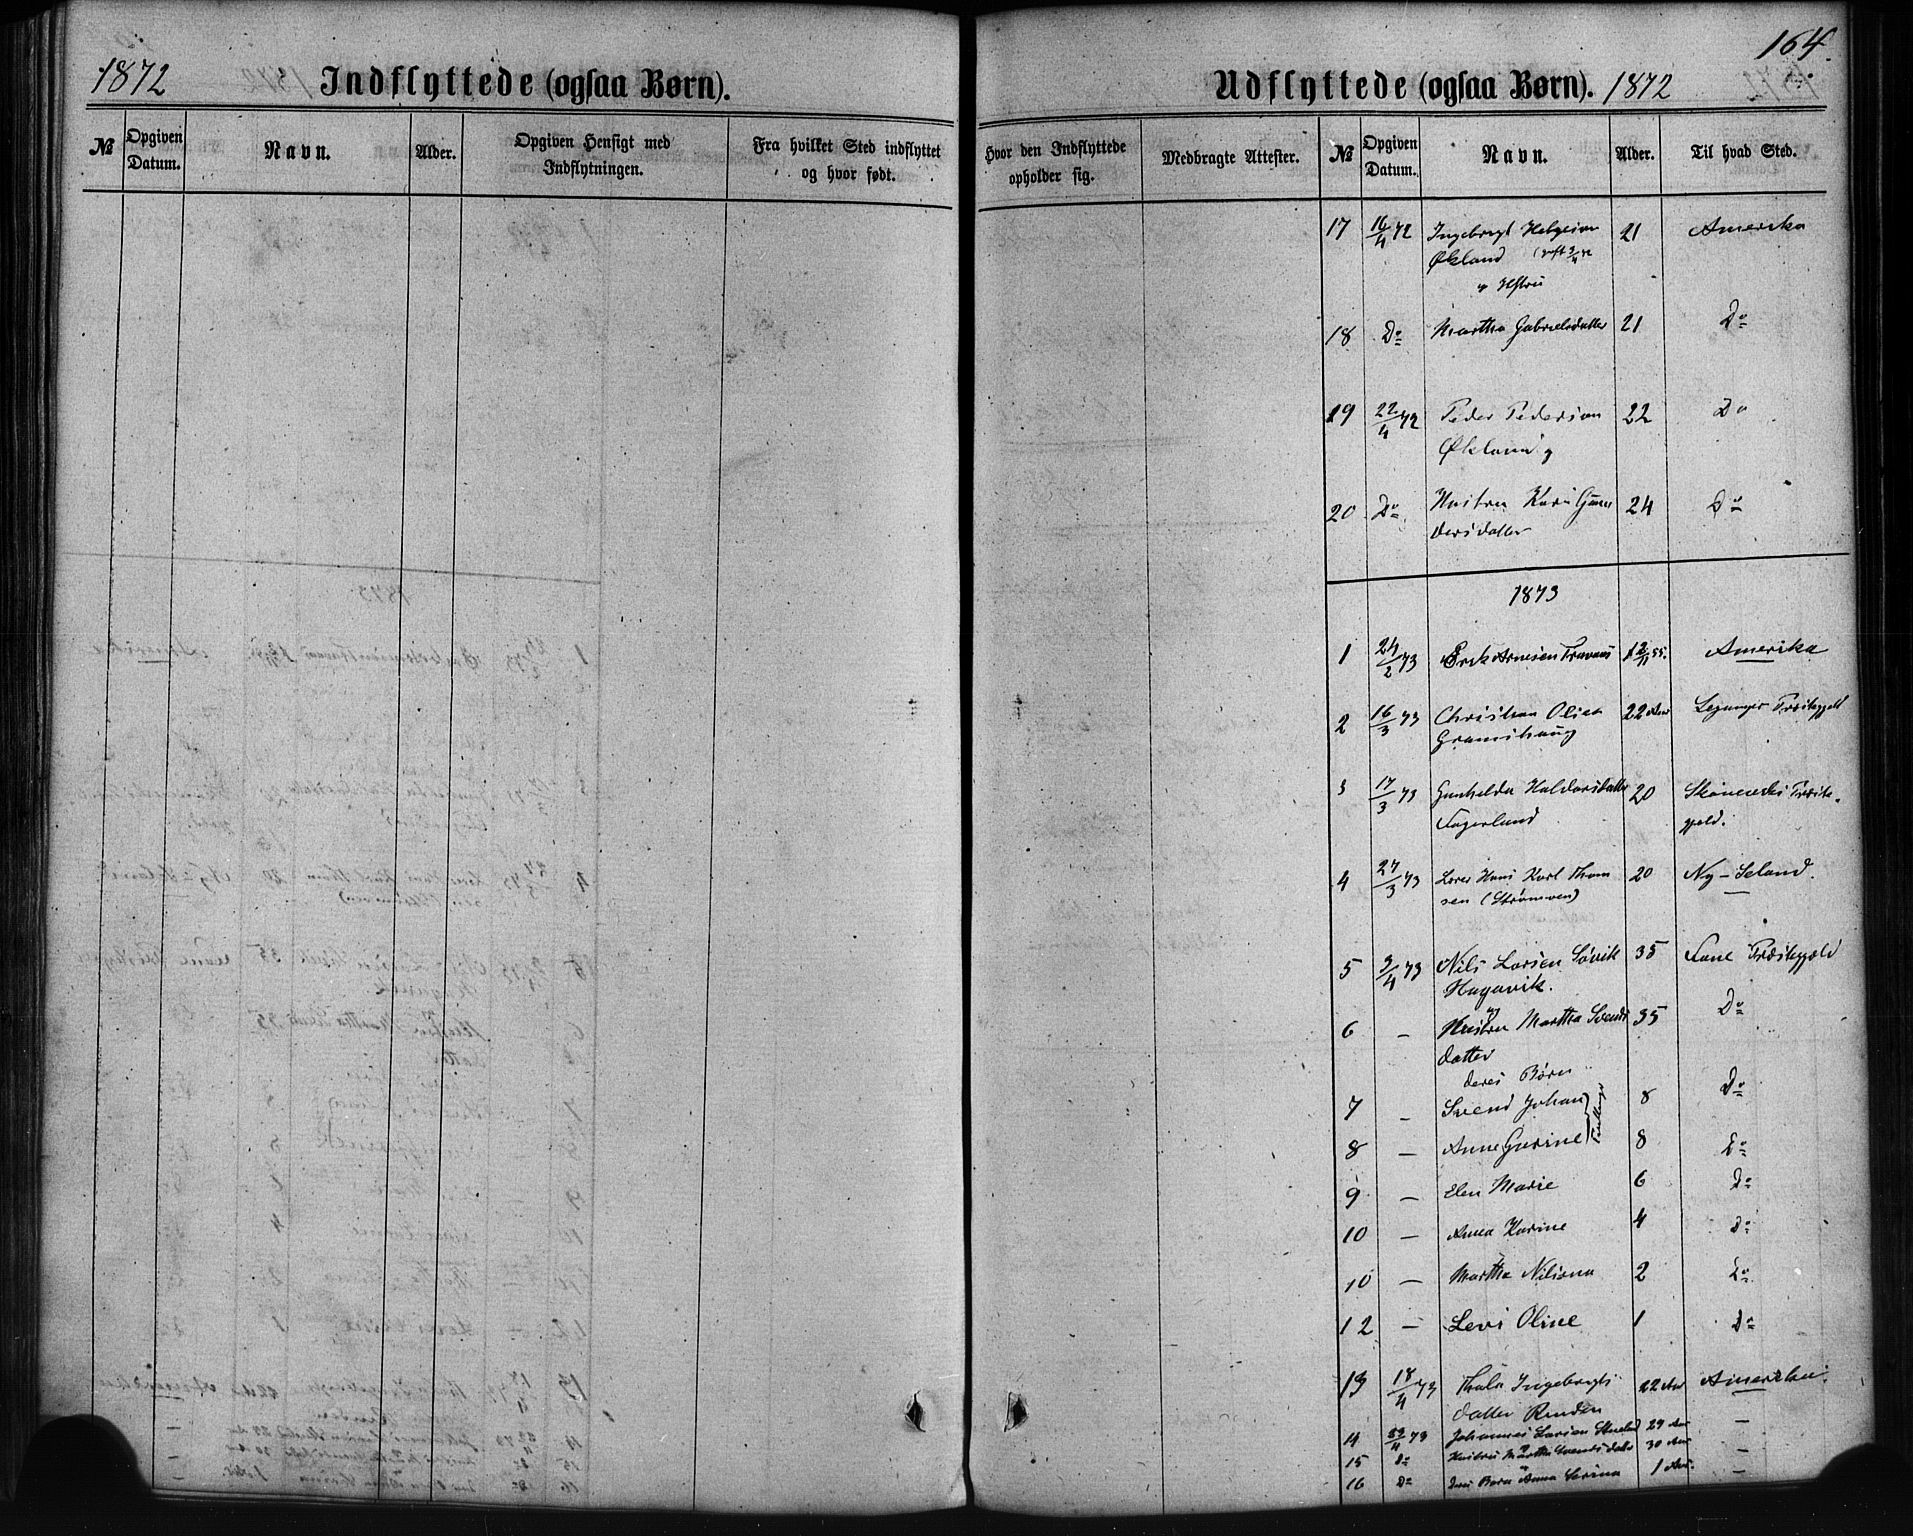 1872
Indflyttede (ogsaa Børn).
№
Opgiven Datum.
Navn.
Alder.
Opgiven Hensigt med Indflytningen.
Fra hvilket Sted indflyttet og hvor født.
164.
Udflyttede (ogsaa Børn). 1872
Hvor den Indflyttede opholder sig.
Medbragte Attester.
№
Opgiven Datum.
Navn.
Alder.
Til hvad Sted.
17 16/4 72 Ingebregt Helgesen 21 Amerika
Økland
18 Do Martha Gabrielsdatter 21 Do
19 22/4 72 Peder Pedersen 22 Do
Økland og
20 Do Hustru Kari Gun 24 Do
dersdatter
1873
1 24/2 73 Erik Arnesen 12/11 55. Amerika
2 16/3 73 Christian Olsen 22 Aar Leganger Præstegjeld
Gramshaug
3 17/3 73 Gunhilda Haldorsdatter 20 Skoneviks Præste-
Fagerland gjeld.
4 27/3 73 Hans Karl Thom 20 Ny-Seland.
sen (Strømsven)
5 3/4 73 Nils Larsen Søvik 35 Fane Præstegjeld
Hagavik.
6 — Hustru Martha Svends 35 Do
datter
deres Børn
7 — Svend Johan 8 Do
Tvillinger
8 — Anne Gurine 8 Do
9 — Elen Marie 6 Do
10 — Anna Karine 4 Do
10 — Martha Nilsina 2 Do
12 — Levi Oline 1 Do
13 18/4 73 Thala Ingebregts 22 Aar Amerika.
datter Rinden
14 73 Johannes Larsen 29 Aar —
15 Do Hustru Martha Svendsdatter 30 Aar —
16 Do Barn Anna Serina 1 Aar. —